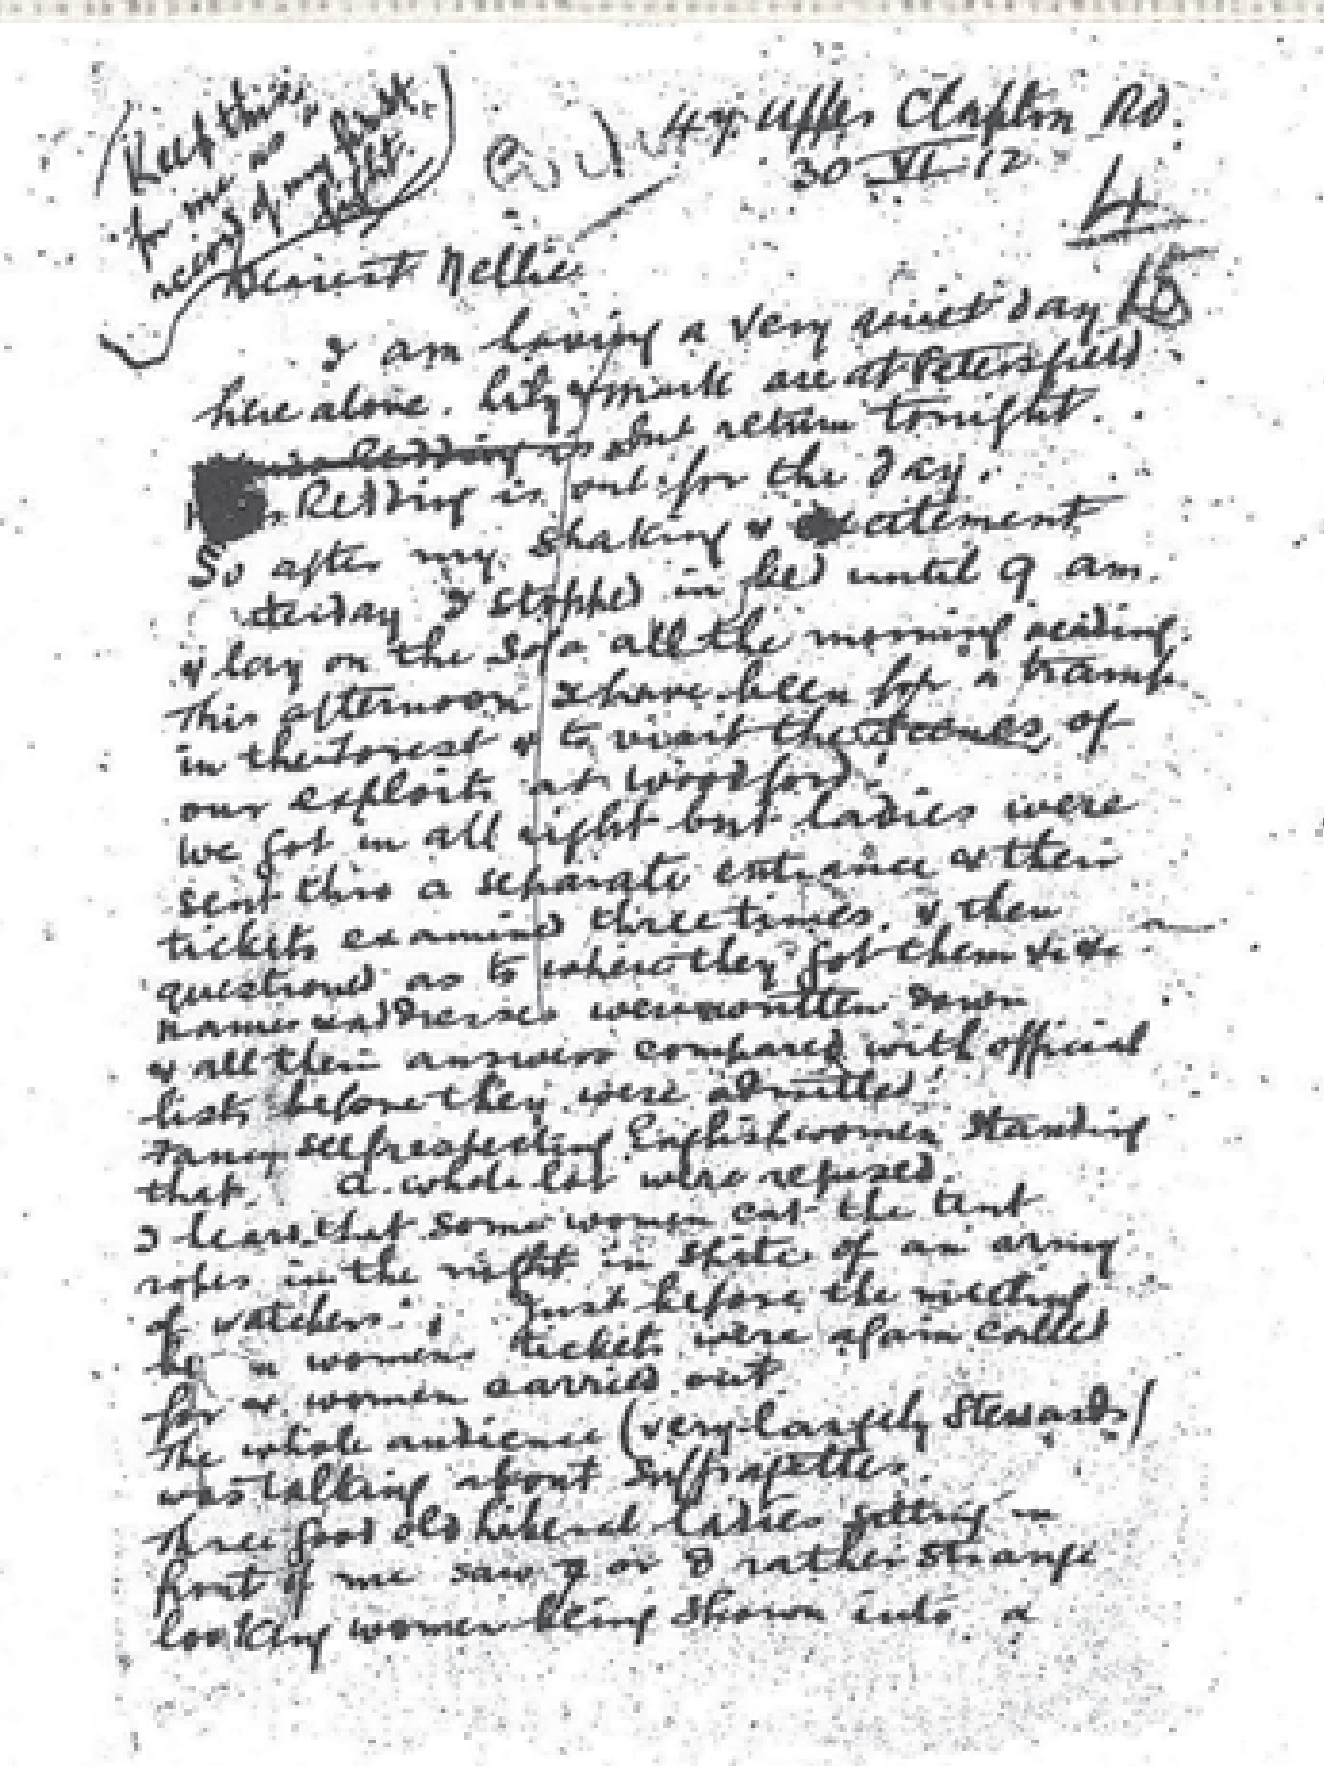 (Keep this
for me as
record of my first
fight.)
47 Upper Clapton Rd.
30 VI 12
4
Dearest Nellie
I am having a very quiet day
here alone. Lily & Mark are at Petersfield
but return tonight.
Redding is out for the day.
So after my shaking & excitement
terday I stopped in bed until 9 am.
& lay on the sofa all the morning reading.
This afternoon I have been for a tramp
in the Forest & to visit the scenes of
our exploits at Woodford!
We got in all right but ladies were
sent thro a separate entrance & their
tickets examined three times, & then
questioned as to where they got them &c &c
names & addresses were written down
& all their answers compared with official
lists before they were admitted!
Fancy selfrespecting Englishwomen standing
that. A whole lot were refused.
I hear that some women cut the tent
ropes in the night in spite of an army
of watchers. Just before the meeting
women's tickets were again called
for & women carried out.
The whole audience (very largely Stewards)
was talking about Suffragettes.
Three good old Liberal ladies sitting in
front of me saw 7 or 8 rather strange
looking women being shown into a